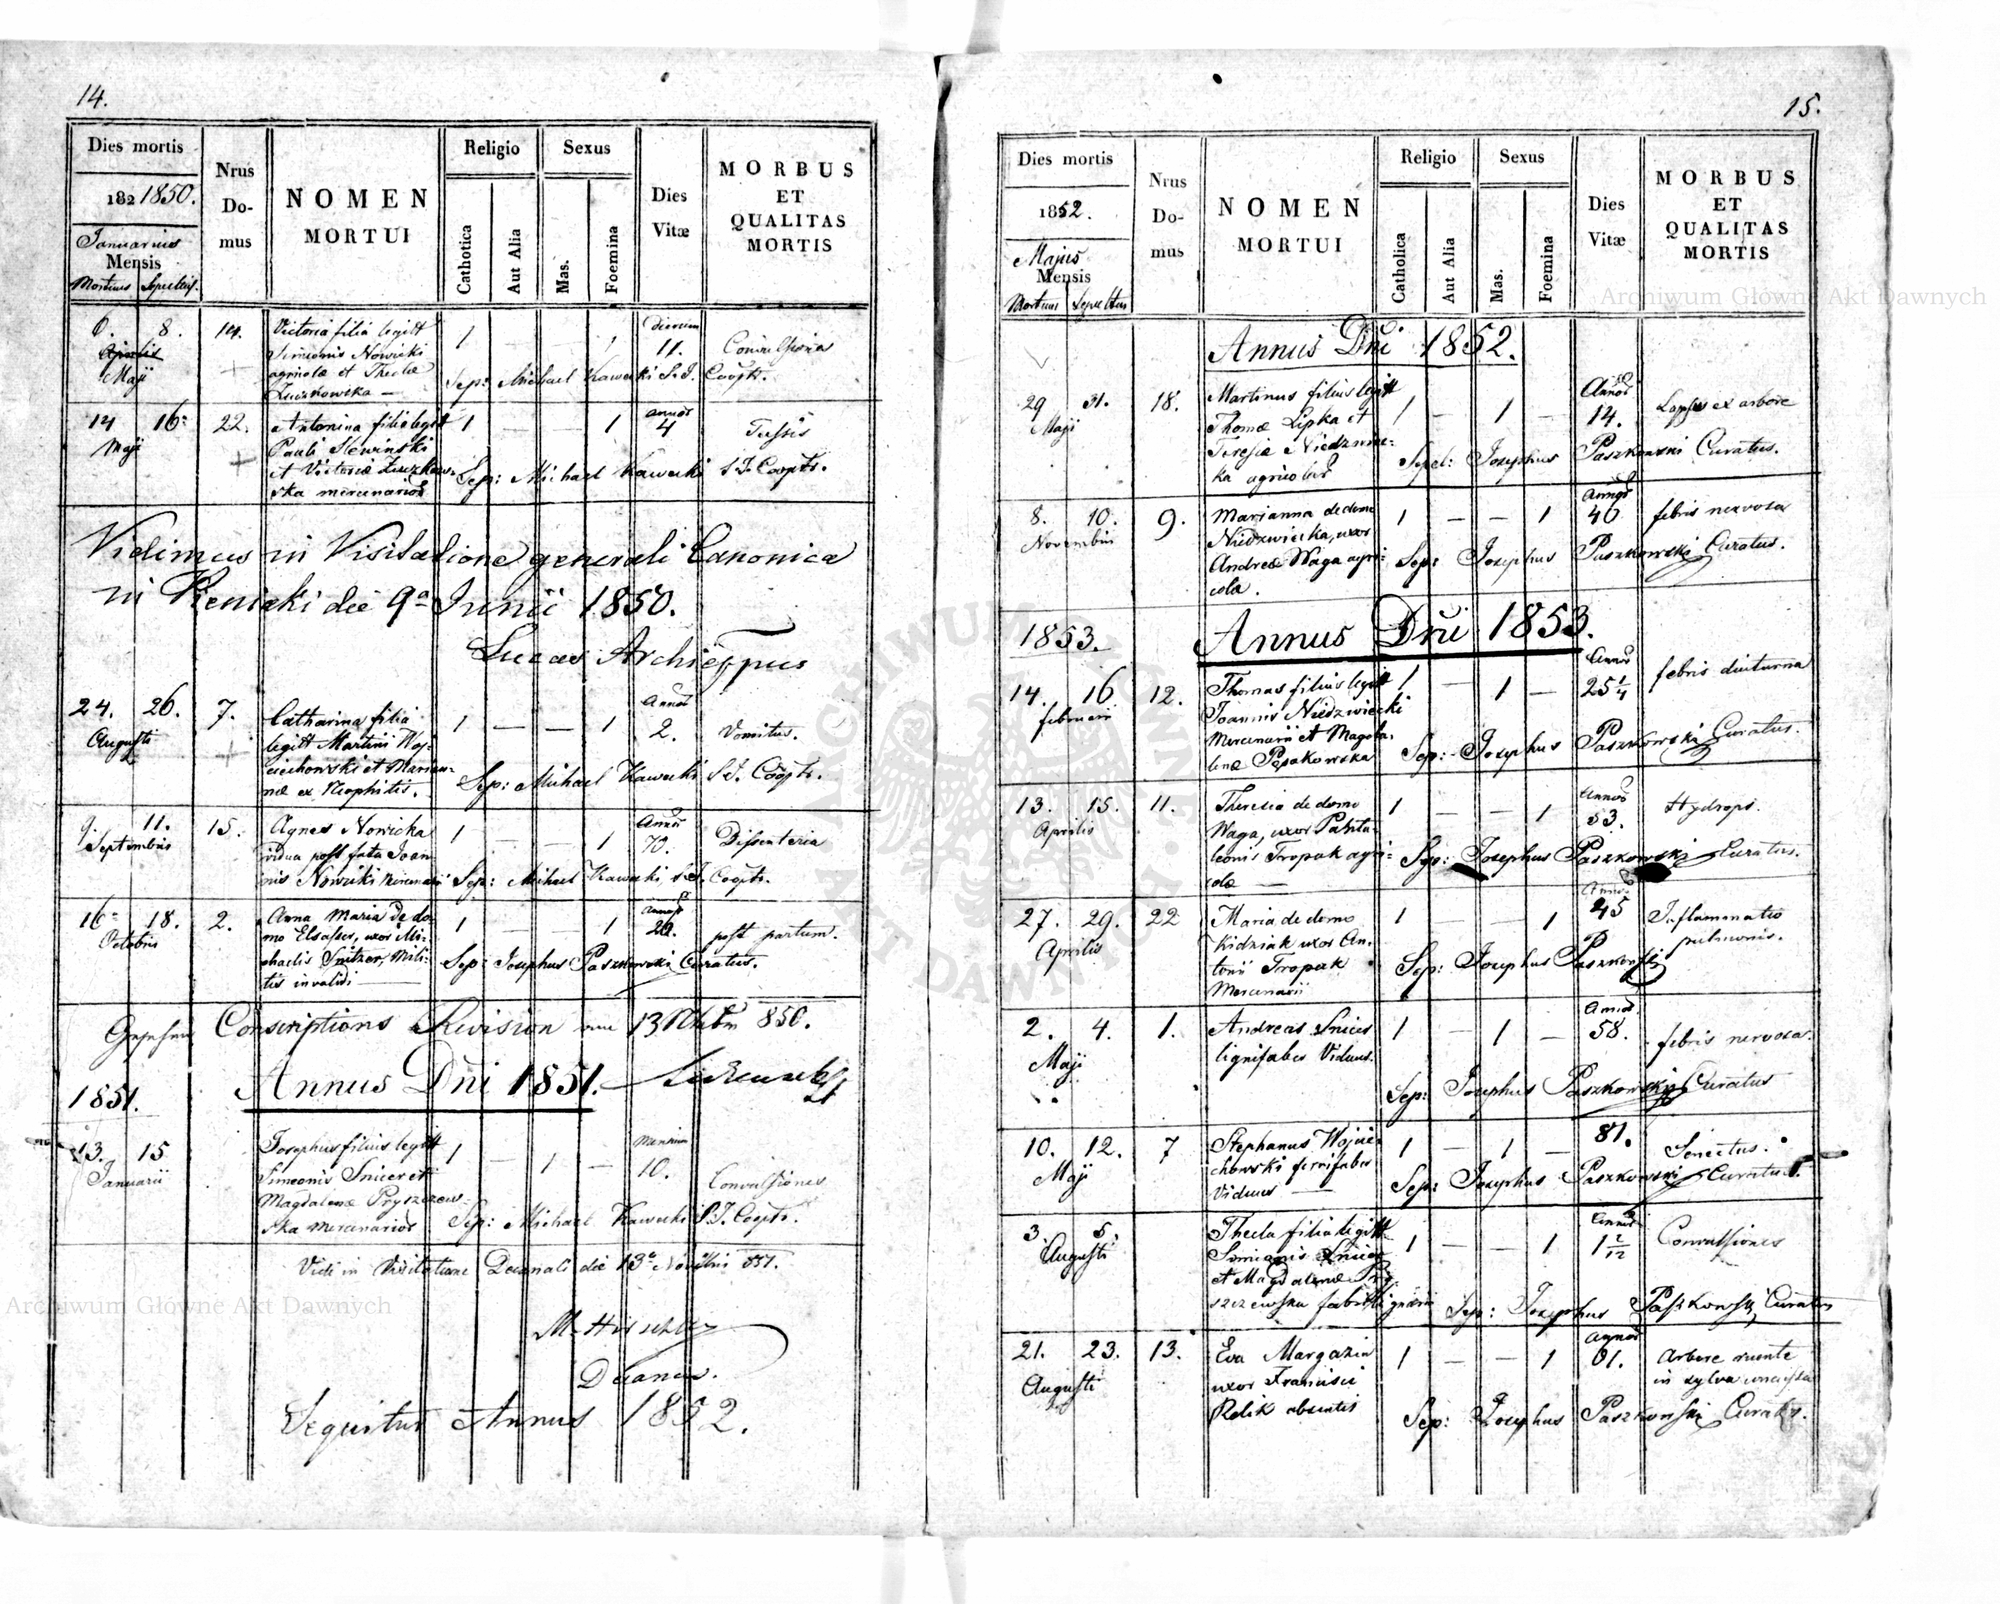 14.
Dies mortis
182 1850.
Januarius
Mensis
Mortuus Sepultus.
Nrus
Do-
mus
NOMEN
MORTUI
Religio
Catholica
Aut Alia
Sexus
Mas.
Foemina
Dies
Vitæ
MORBUS
ET
QUALITAS
MORTIS
6. 8. 14. Victoria filia legitt 1 — — 1 dierum
Aprilis Simeonis Nowicki 11. Convulsiones
Maji agricolæ et Theclæ Sep: Michael Kawecki S.J. Cooptr.
Zuczkowska —
14 16 22. Antonina filia legitt 1 — — 1 annor 4 Tussis
Maji Pauli Slewinski
et Victoriæ Zuczkow- Sep: Michael Kawecki S.J. Cooptr.
ska mercenarior
Vidimus in Visitatione generali Canonica
in die 9a Junii 1850.
Lucas Archieppus
24. 26. 7. Catharina filia 1 — — 1 Annor 2. Vomitus.
Augusti legitt Martini Woj-
ciechowski et Marian- Sep: Michael Kawecki S.J. Cooptr.
næ ex Neophitis.
9. 11. 15. Agnes Nowicka 1 — — 1 Annor 70. Dissenteria
Septembris vidua post fata Joan-
nis Nowicki mercenarii Sep: Michael Kawecki, S.J. Cooptr.
16 18. 2. Anna Maria de do- 1 — 1 Annor post partum.
Octobris mo Elsasser, uxor Mi-
chaelis Snitzer, mili- Sep: Josephus Paszkowski Curatus.
tis invalidi —
Gesehen Conscriptions Revision am 13 850.
1851. Annus Dni 1851.
13. 15 Josephus filius legitt 1 — 1 — mensium 10. Convulsiones
Januarii Simeonis Snicer et
Magdalenæ Pryszczews-
ska mercenarior Sep: Michael Kawecki S.J. Cooptr.
Vidi in Visitatione Decanali die 13a Novembris 851.
M. Hirschler
Decanus.
Sequitur Annus 1852.
15.
Dies mortis
1852.
Majus
Mensis
Mortuus Sepultus
Nrus
Do-
mus
NOMEN
MORTUI
Religio
Catholica
Aut Alia
Sexus
Mas.
Foemina
Dies
Vitæ
MORBUS
ET
QUALITAS
MORTIS
Annus Dni 1852.
29 31. 18. Martinus filius legitt 1 — 1 — Annor 14. Lapsus ex arbore
Maji Thomæ Lipka et
Teresiæ Niedzwiec- Sepel: Josephus Paszkowski Curatus.
ka agricolar
8. 10. 9. Marianna de domo 1 — — 1 Annor 40 febris nervosa
Novembris Niedzwiecka, uxor
Andreæ Waga agri- Sep: Josephus Paszkowski Curatus.
colæ.
1853. Annus Dni 1853.
14. 16 12. Thomas filius legitt 1 — 1 — Annor 25 1/4 febris diuturna
februarii Joannis Niedzwiecki
Mercenarii et Magda- Sep: Josephus Paszkowski Curatus.
lenæ Pępakowska
13. 15. 11. Theresia de domo 1 — — 1 Annor 53. Hydrops.
Aprilis Waga, uxor Panta-
leonis Tropak agri- Sep: Josephus Paszkowski Curatus.
colæ —
27. 29. 22 Maria de domo 1 — — 1 Annor 45 Inflammatio
Aprilis Kidziak uxor An- pulmonis.
tonii Tropak Sep: Josephus Paszkowski
Mercenarii
2. 4. 1. Andreas Snicer 1 — 1 — Annor 58. febris nervosa.
Maji lignifaber Viduus.
Sep: Josephus Paszkowski Curatus
10. 12. 7 Stephanus Wojcie- 1 — 1 — 81. Senectus.
Maji chowski ferrifaber
Viduus — Sep: Josephus Paszkowski Curatus.
3. 5. Thecla filia legitt 1 — — 1 Annor 1 2/12 Convulsiones
Augusti Simeonis Snicer
et Magdalenæ Pry-
szczewska fabri lignarii Sep: Josephus Paszkowski Curatus
21. 23. 13. Eva Margazin 1 — — 1 Annor 61. Arbore ruente
Augusti uxor Francisci in sylva
Relik absentis Sep: Josephus Paszkowski Curatus.
Archiwum Główne Akt Dawnych
Archiwum Główne Akt Dawnych
ARCHIWUM GŁÓWNE AKT DAWNYCH